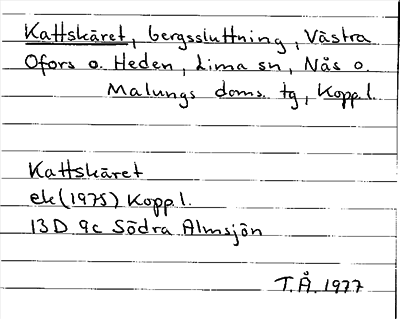 Kattskäret, bergssluttning, Västra
Ofors o. Heden, Lima sn, Nås o.
Malungs doms. tg, Kopp.l.
Kattskäret
ek (1975) Kopp.l.
13D 9c Södra Almsjön
T.Å. 1977